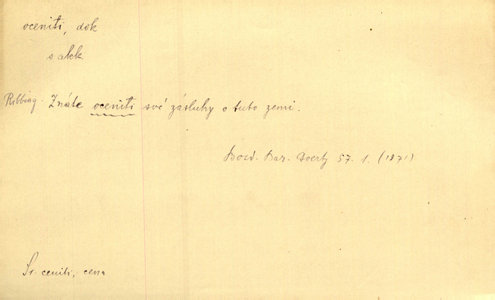 oceniti, dok
s akk
Ribbing. Znáte oceniti své zásluhy o tuto zemi.
Bozd. Bar. Goertz 57. 1. (1871)
Sr. ceniti, cena